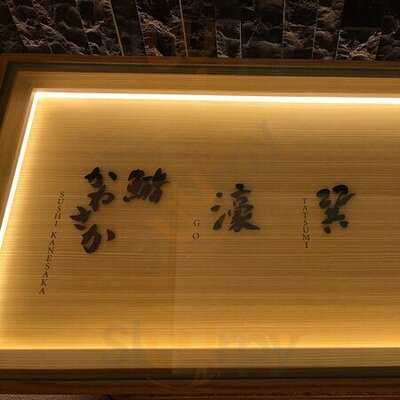 巽
TATSUMI
濠
GO
鮨
かねさか
SUSHI KANESAKA